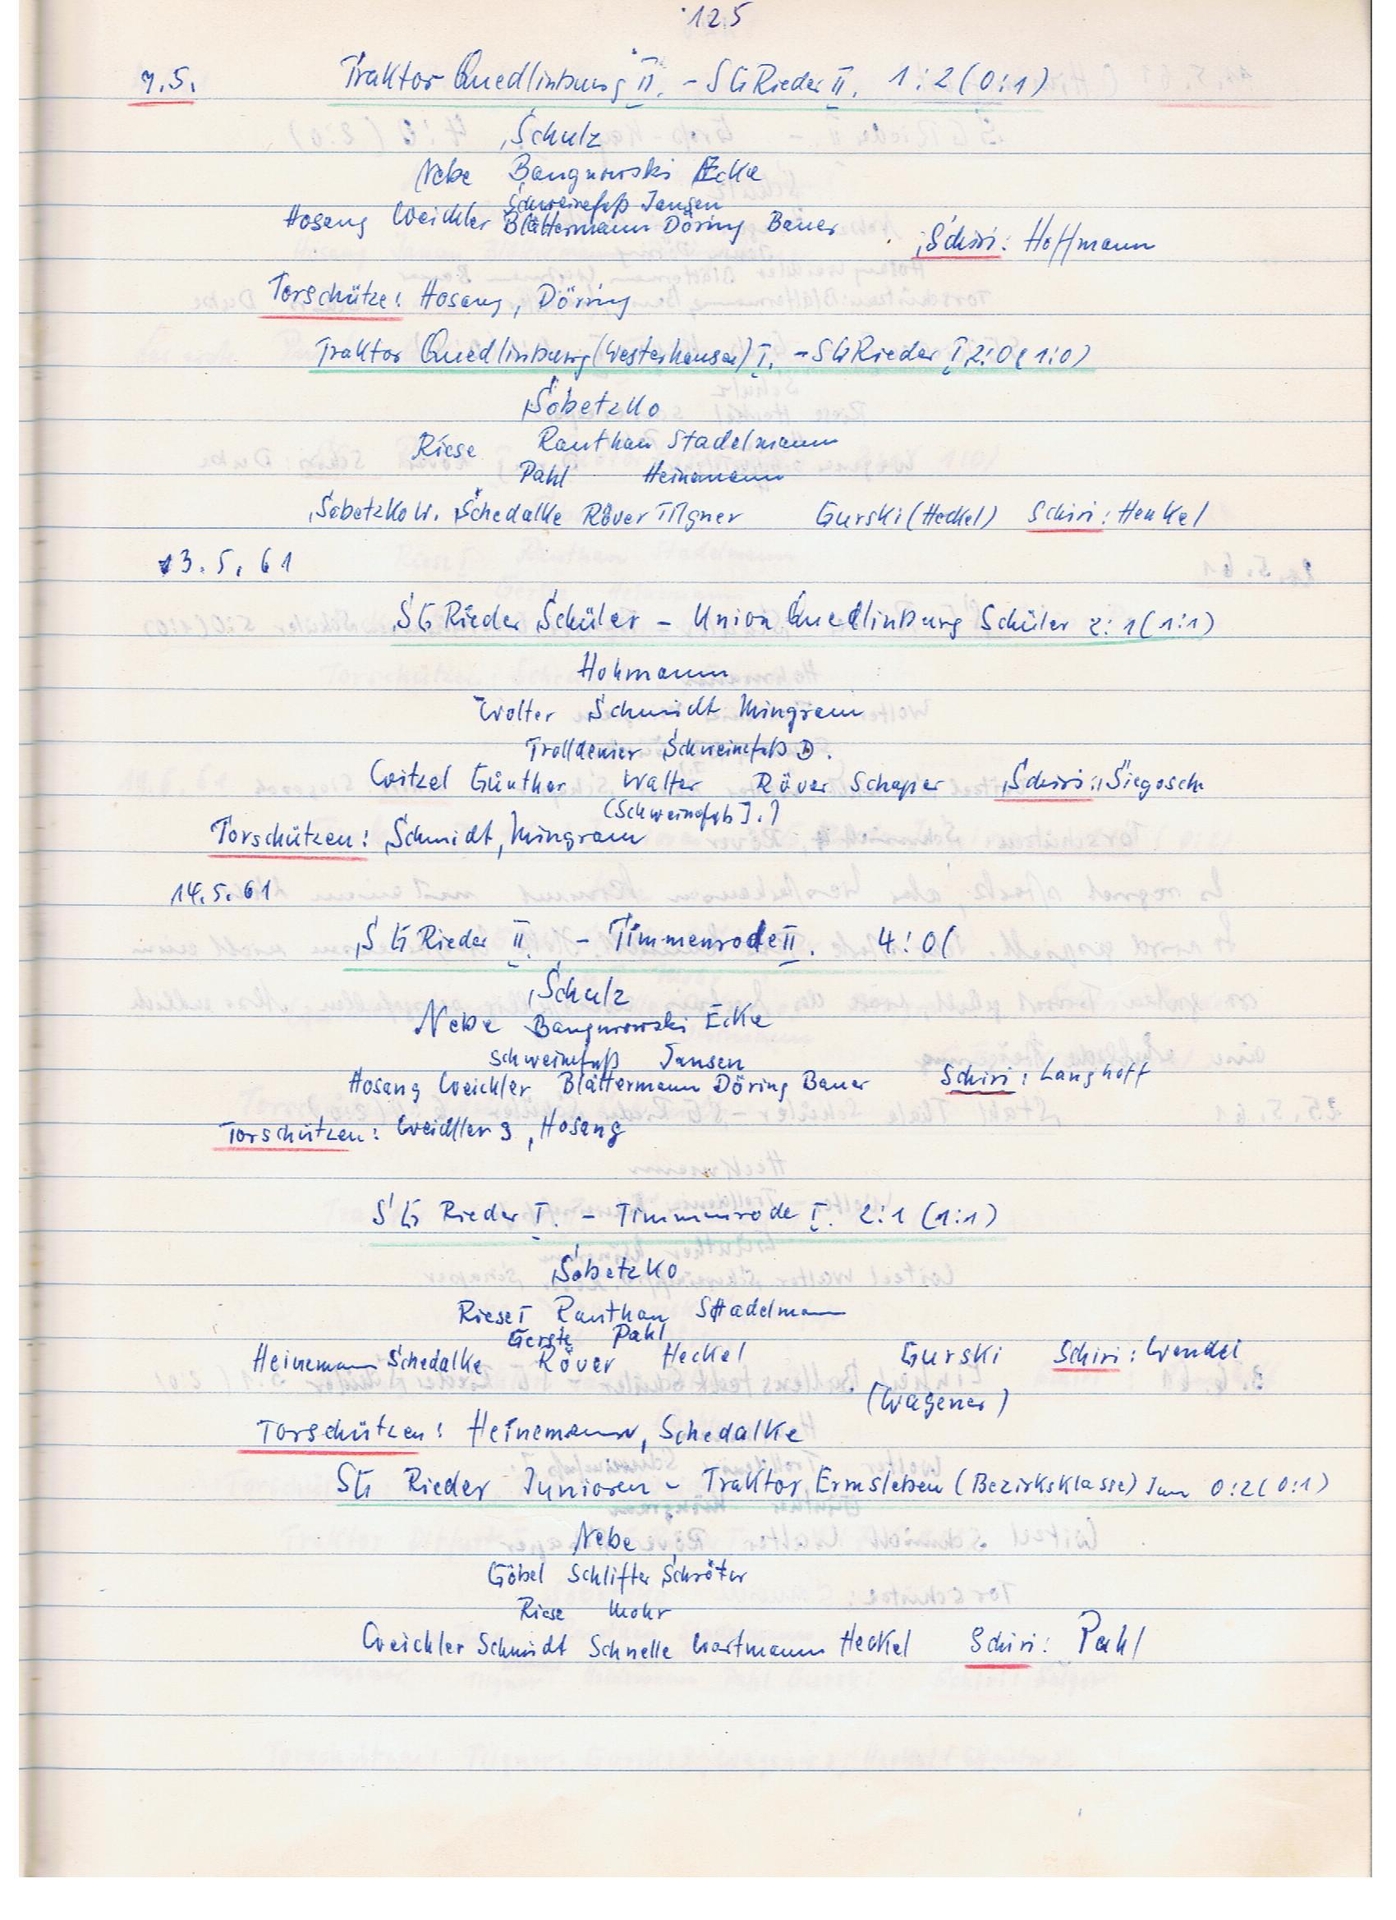 125
7.5. Traktor Quedlinburg II. - SG Rieder II. 1:2 (0:1)
Schulz
Nebe Bangnowski Ecke
Schweinefuß Jansen
Hosang Weichler Blättermann Döring Bauer Schiri: Hoffmann
Torschütze: Hosang, Döring
Traktor Quedlinburg (Westerhausen) I. - SG Rieder I 2:0 (1:0)
Sobetzko
Riese Rauthan Stadelmann
Pahl Heinemann
Sobetzko W. Schedalke Röver Tilgner Gurski (Heckel) Schiri: Henkel
13.5.61
SG Rieder Schüler - Union Quedlinburg Schüler 2:1 (1:1)
Hohmann
Wolter Schmidt Mingram
Trolldenier Schweinefuß D.
Witzel Günther Walter Röver Schaper Schiri: Siegosch
(Schweinefuß J.)
Torschützen: Schmidt, Mingram
14.5.61
SG Rieder II. - Timmenrode II. 4:0 (
Schulz
Nebe Bangnowski Ecke
Schweinefuß Jansen
Hosang Weichler Blättermann Döring Bauer Schiri: Langhoff
Torschützen: Weichler 3, Hosang
SG Rieder I. - Timmenrode I. 2:1 (1:1)
Sobetzko
Riese I Rauthan Stadelmann
Gerste Pahl
Heinemann Schedalke Röver Heckel Gurski Schiri: Wendel
(Wagener)
Torschützen: Heinemann, Schedalke
SG Rieder Junioren - Traktor Ermsleben (Bezirksklasse) Jun 0:2 (0:1)
Nebe
Göbel Schlifter Schröter
Riese Mohr
Weichler Schmidt Schnelle Wartmann Heckel Schiri: Pahl